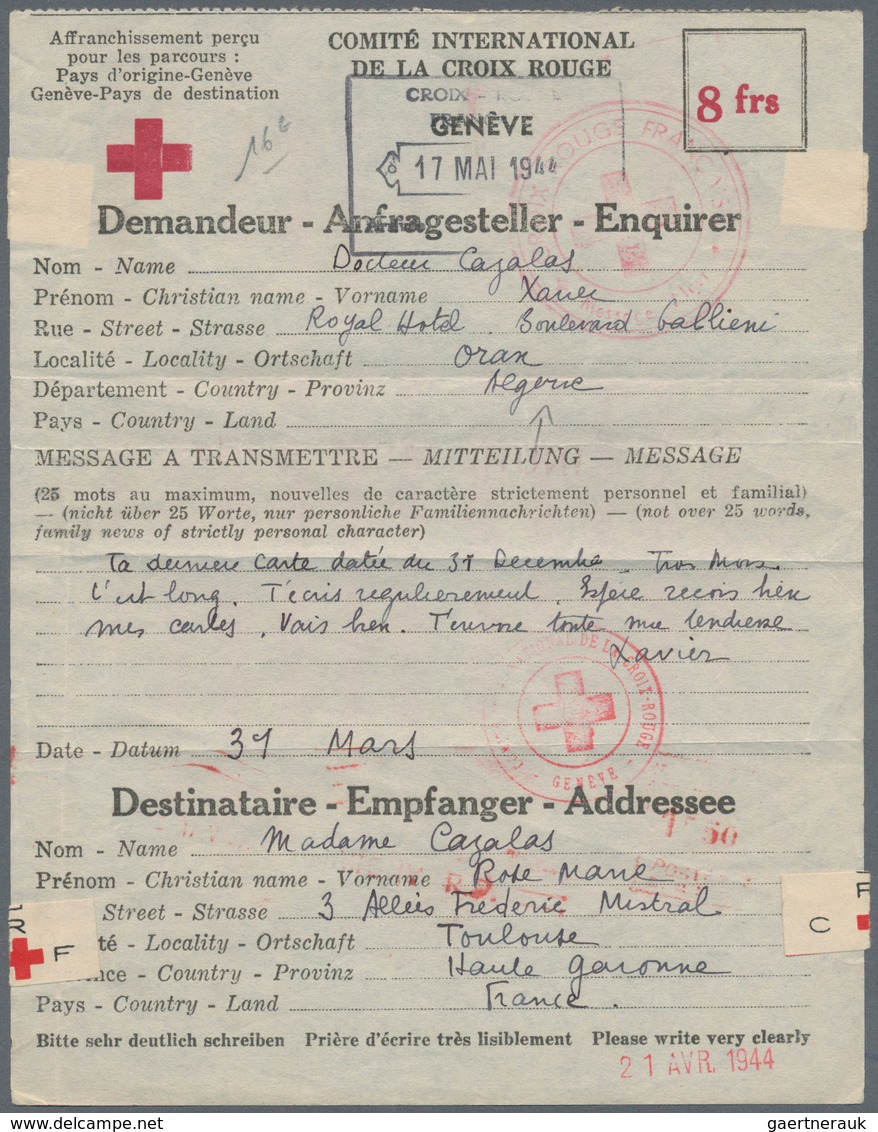 Affranchissement perçu
pour les parcours :
Pays d'origine-Genève
Genève-Pays de destination
COMITÉ INTERNATIONAL
DE LA CROIX ROUGE
GENÈVE
8 frs
16e
CROIX - ROUGE
FRANC
17 MAI 1944
CROIX ROUGE FRANÇAISE
Demandeur - Anfragesteller - Enquirer
Nom - Name Docteur Cazalas
Prénom - Christian name - Vorname Xavier
Rue - Street - Strasse Royal Hotel. Boulevard Gallieni
Localité - Locality - Ortschaft Oran
Département - Country - Provinz Algerie
Pays - Country - Land
MESSAGE A TRANSMETTRE — MITTEILUNG — MESSAGE
(25 mots au maximum, nouvelles de caractère strictement personnel et familial)
— (nicht über 25 Worte, nur personliche Familiennachrichten) — (not over 25 words,
family news of strictly personal character)
Ta derniere carte datée du 31 Decembre. Trois Mois.
C'est long. T'écris regulierement. Espère recois bien
mes cartes. Vais bien. T'envoie toute ma tendresse
Xavier
Date - Datum 31 Mars
INTERNATIONAL DE LA CROIX-ROUGE
GENÈVE
Destinataire - Empfanger - Addressee
Nom - Name Madame Cazalas
Prénom - Christian name - Vorname Rose Marie
Street - Strasse 3 Allées Frederic Mistral
té - Locality - Ortschaft Toulouse
nce - Country - Provinz Haute Garonne
Pays - Country - Land France.
F
C
Bitte sehr deutlich schreiben Prière d'écrire très lisiblement Please write very clearly
21 AVR. 1944
gaertnerauk // www.delcampe.net